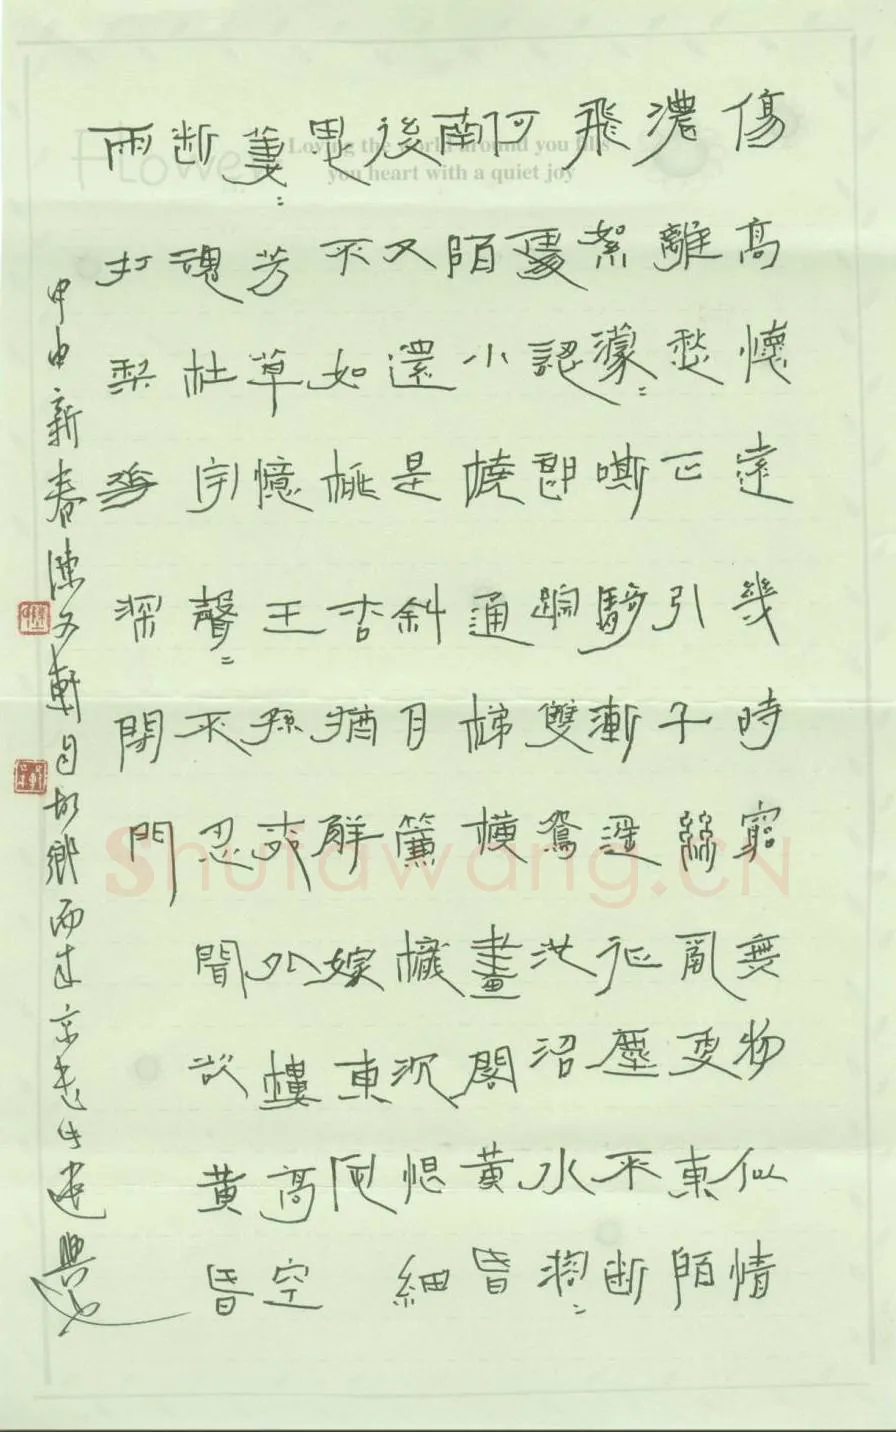 Flower
Loving the world around you fills
you heart with a quiet joy
傷高懷遠幾時窮無物似情
濃離愁正引千絲亂更東陌
飛絮濛〻嘶騎漸遥征塵不断
何處認郎踪雙鴛池沼水溶〻
南陌小橈通梯橫畫閣黄昏
後又還是斜月簾櫳沉恨細
思不如桃杏猶解嫁東風
萋〻芳草憶王孫柳外樓高空
断魂杜宇聲〻不忍聞欲黄昏
雨打梨花深閉門
甲申新春陳文軒自故鄉而
Shufawang.CN